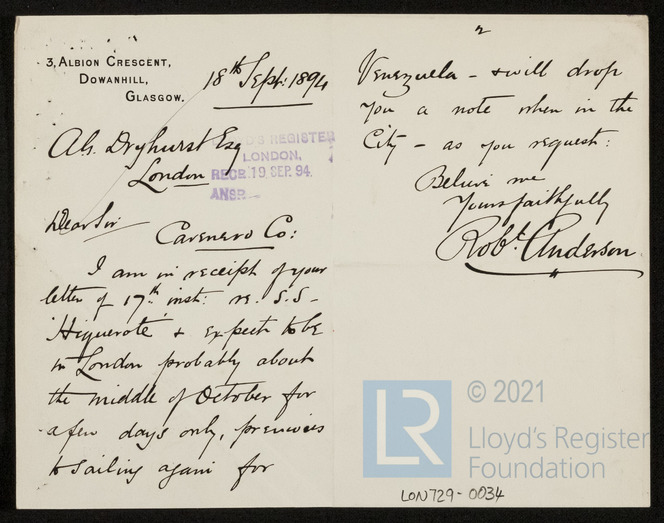 3, ALBION CRESCENT,
DOWANHILL,
GLASGOW.
18th Sept: 1894
A.h. Dryhurst Esq
London
LLOYD'S REGISTER
LONDON,
RECD. 19. SEP. 94.
ANSD
Dear Sir
Carenero Co:
I am in receipt of your
letter of 17th inst: re. S.S-
'Higuerote' & expect to be
in London probably about
the middle of October for
a few days only, previous
to sailing again for
2
Venezuela - & will drop
you a note when in the
City - as you request:
Believe me
Yours faithfully
Robt. Anderson
LR
© 2021
Lloyd's Register
Foundation
LON729-0034